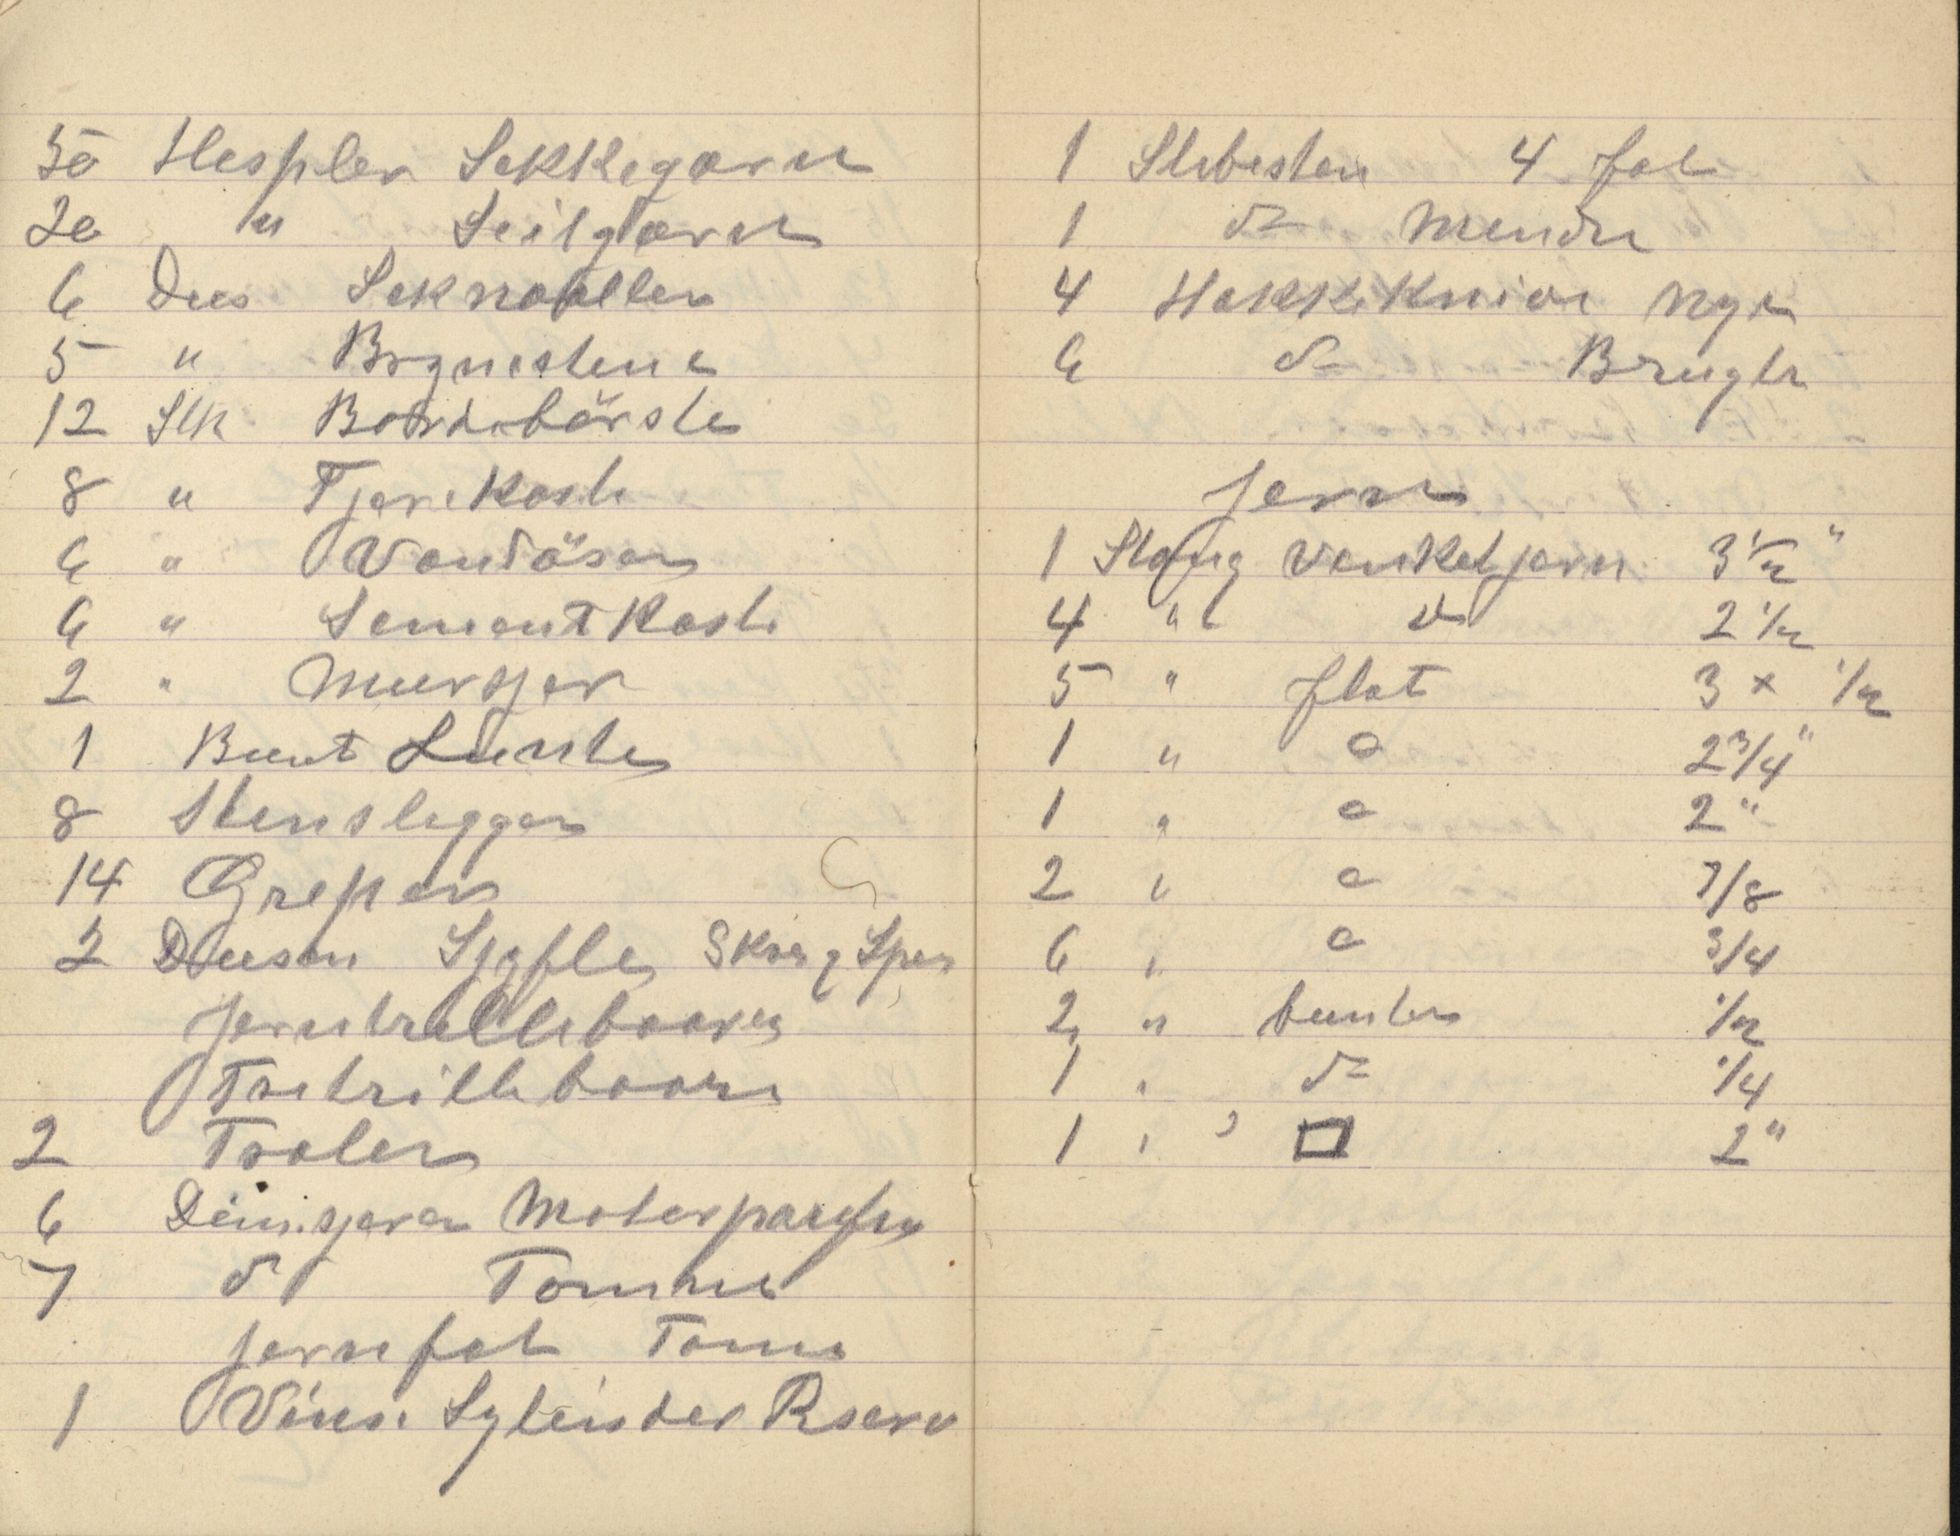 30 Hespler Sekkegarn
20 " Seilgarn
6 Dus Seknaaller
5 " Brynestene
12 Stk Bordbörste
8 " Tjærekoste
6 " Vandösar
6 " Sementkoste
2 " Murskjer
1 Bunt Lunte
8 Stenslegger
14 Greper
2 Dusen Syfler
Jerntrillebaarer
Tretrillebaare
2 Traler
6 Dunkjerer Motorparafin
7 do Tomme
Jernfat Tome
1 Vins. Sylinder Reserv
1 Slibesten 4 fot
1 do Mendre
4 Hakkekniver Nye
6 do Brugte
Jern
1 Stang Venkeljern 3 1/2"
4 " do 2 1/2
5 " flat 3 x 1/2
1 " o 2 3/4"
1 " o 2"
2 " o 7/8
6 " o 3/4
2 " bunter 1/2
1 " do 1/4
1 " " □ 2"